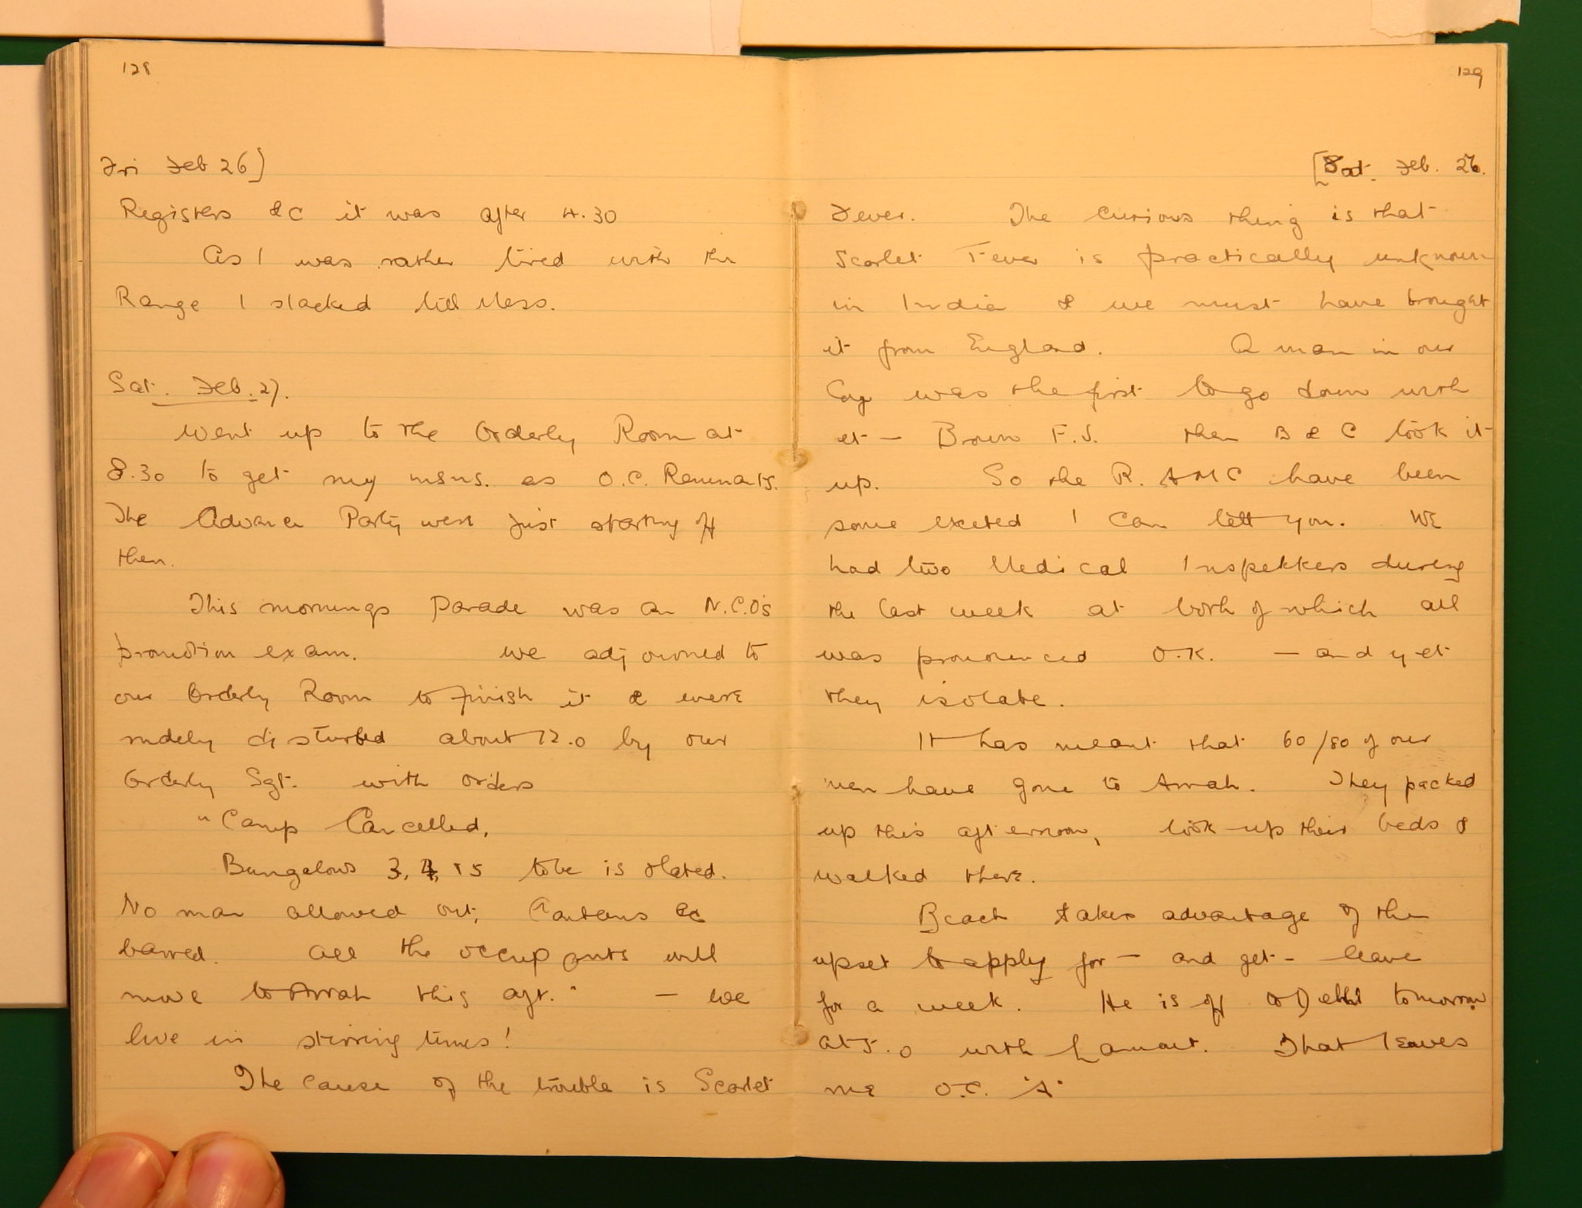 128
Fri Feb 26]
Registers &c it was after 4.30
As I was rather tired with the
Range I slacked till Mess.
Sat. Feb. 27.
Went up to the Orderly Room at
8.30 to get my instns. as O.C. Remnants.
The Advance Party were just starting off
then.
This mornings parade was an N.C.O's
promotion exam. we adjourned to
our Orderly Room to finish it & were
rudely disturbed about 12.0 by our
Orderly Sgt. with orders
"Camp Cancelled,
Bungalows 3, 4, & 5 to be isolated.
No man allowed out, Canteens &c
barred. All the occupants will
move to Arrah this aft." — we
live in stirring times!
The cause of the trouble is Scarlet
129
[Sat. Feb. 26.
Fever. The curious thing is that
Scarlet Fever is practically unknown
in India & we must have brought
it from England. A man in our
Coy was the first to go down with
it — Brown F.J. then B & C took it
up. So the R.AMC have been
some excited I can tell you. WE
had two Medical Inspekkers during
the last week at both of which all
was pronounced O.K. — and yet
they isolate.
It has meant that 60/80 of our
men have gone to Arrah. They packed
up this afternoon, took up their beds &
walked there.
Beach takes advantage of the
upset to apply for — and get — leave
for a week. He is off to Delhi tomorrow
at 5.0 with Lamart. That leaves
me O.C. 'A'